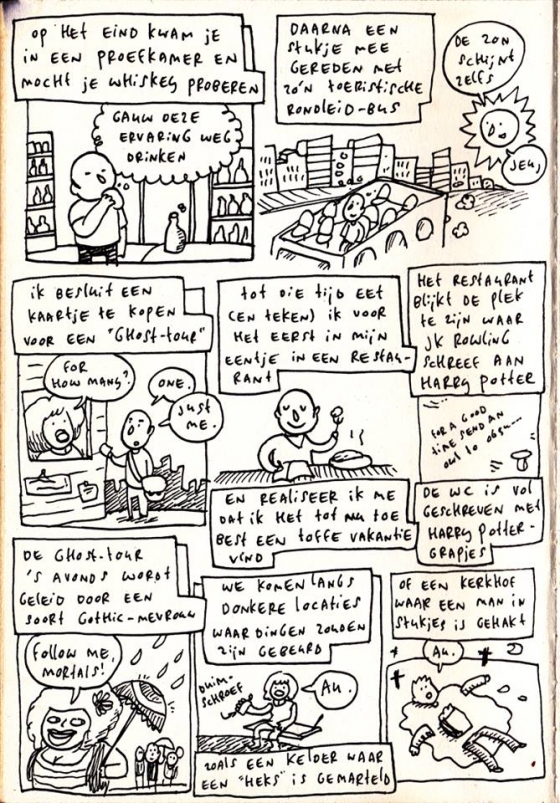 OP HET EIND KWAM JE
IN EEN PROEFKAMER EN
MOCHT JE WHISKEY PROBEREN
GAUW DEZE
ERVARING WEG
DRINKEN
DAARNA EEN
STUKJE MEE
GEREDEN MET
ZO'N TOERISTISCHE
RONDLEID-BUS
DE ZON
SCHIJNT
ZELFS
JEUJ
IK BESLUIT EEN
KAARTJE TE KOPEN
VOOR EEN "GHOST-TOUR"
FOR
HOW MANY?
ONE.
JUST
ME.
TOT DIE TIJD EET
(EN TEKEN) IK VOOR
HET EERST IN MIJN
EENTJE IN EEN RESTAU-
RANT
EN REALISEER IK ME
DAT IK HET TOT NU TOE
BEST EEN TOFFE VAKANTIE
VIND
HET RESTAURANT
BLIJKT DE PLEK
TE ZIJN WAAR
JK ROWLING
SCHREEF AAN
HARRY POTTER
FOR A GOOD
TIME SEND AN
OWL TO
DE WC IS VOL
GESCHREVEN MET
HARRY POTTER-
GRAPJES
DE GHOST-TOUR
'S AVONDS WORDT
GELEID DOOR EEN
SOORT GOTHIC-MEVROUW
FOLLOW ME,
MORTALS!
WE KOMEN LANGS
DONKERE LOCATIES
WAAR DINGEN ZOUDEN
ZIJN GEBEURD
DUIM-
SCHROEF
AU.
ZOALS EEN KELDER WAAR
EEN "HEKS" IS GEMARTELD
OF EEN KERKHOF
WAAR EEN MAN IN
STUKJES IS GEHAKT
AU.